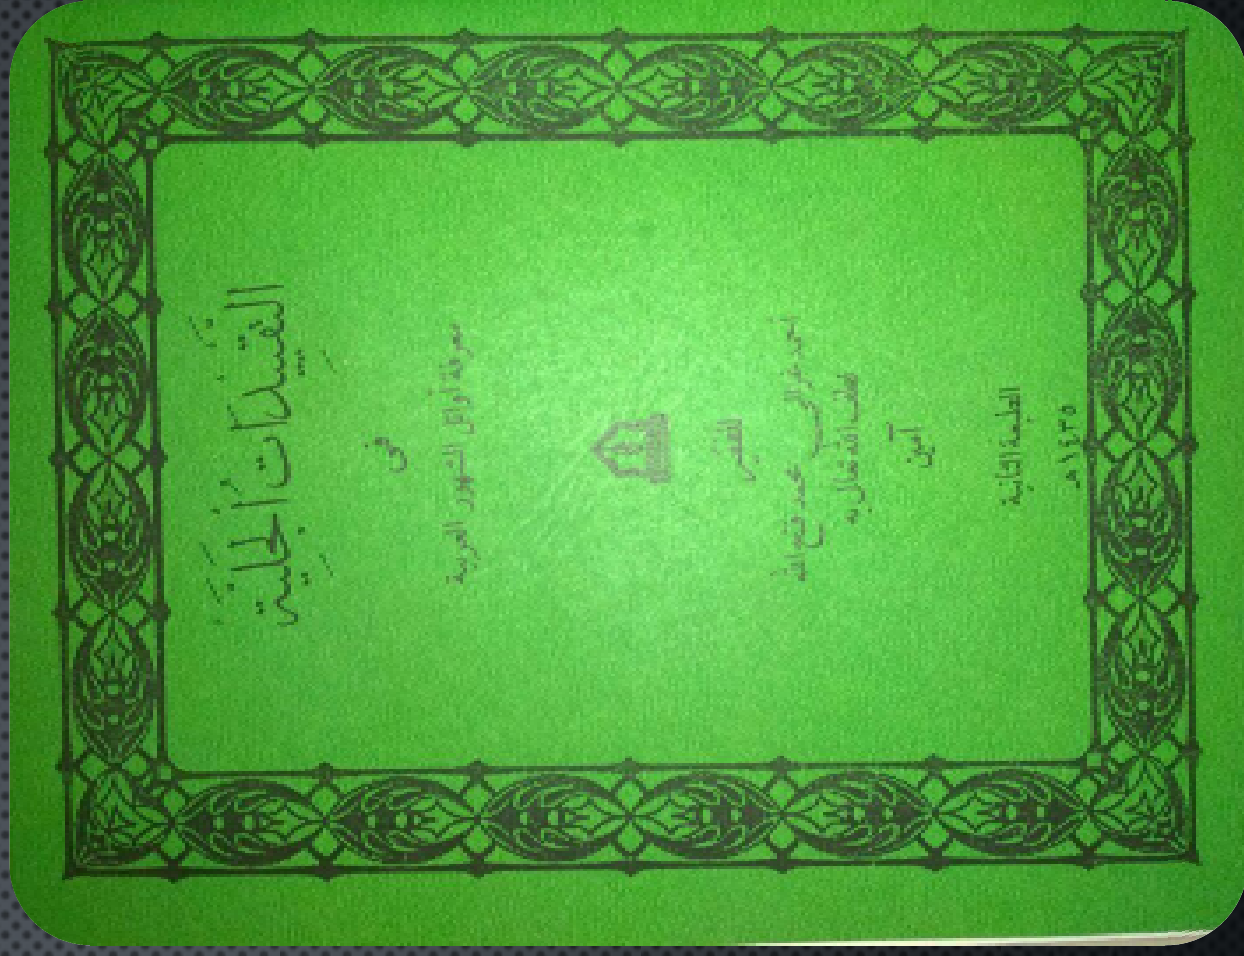 التقييدات الجلية
فى
معرفة أوائل الشهور العربية
الفقير
أحمد غزالى محمد فتح الله
لطف الله تعالى به
آمين
الطبعة الثانية
١٤٣٥ هـ